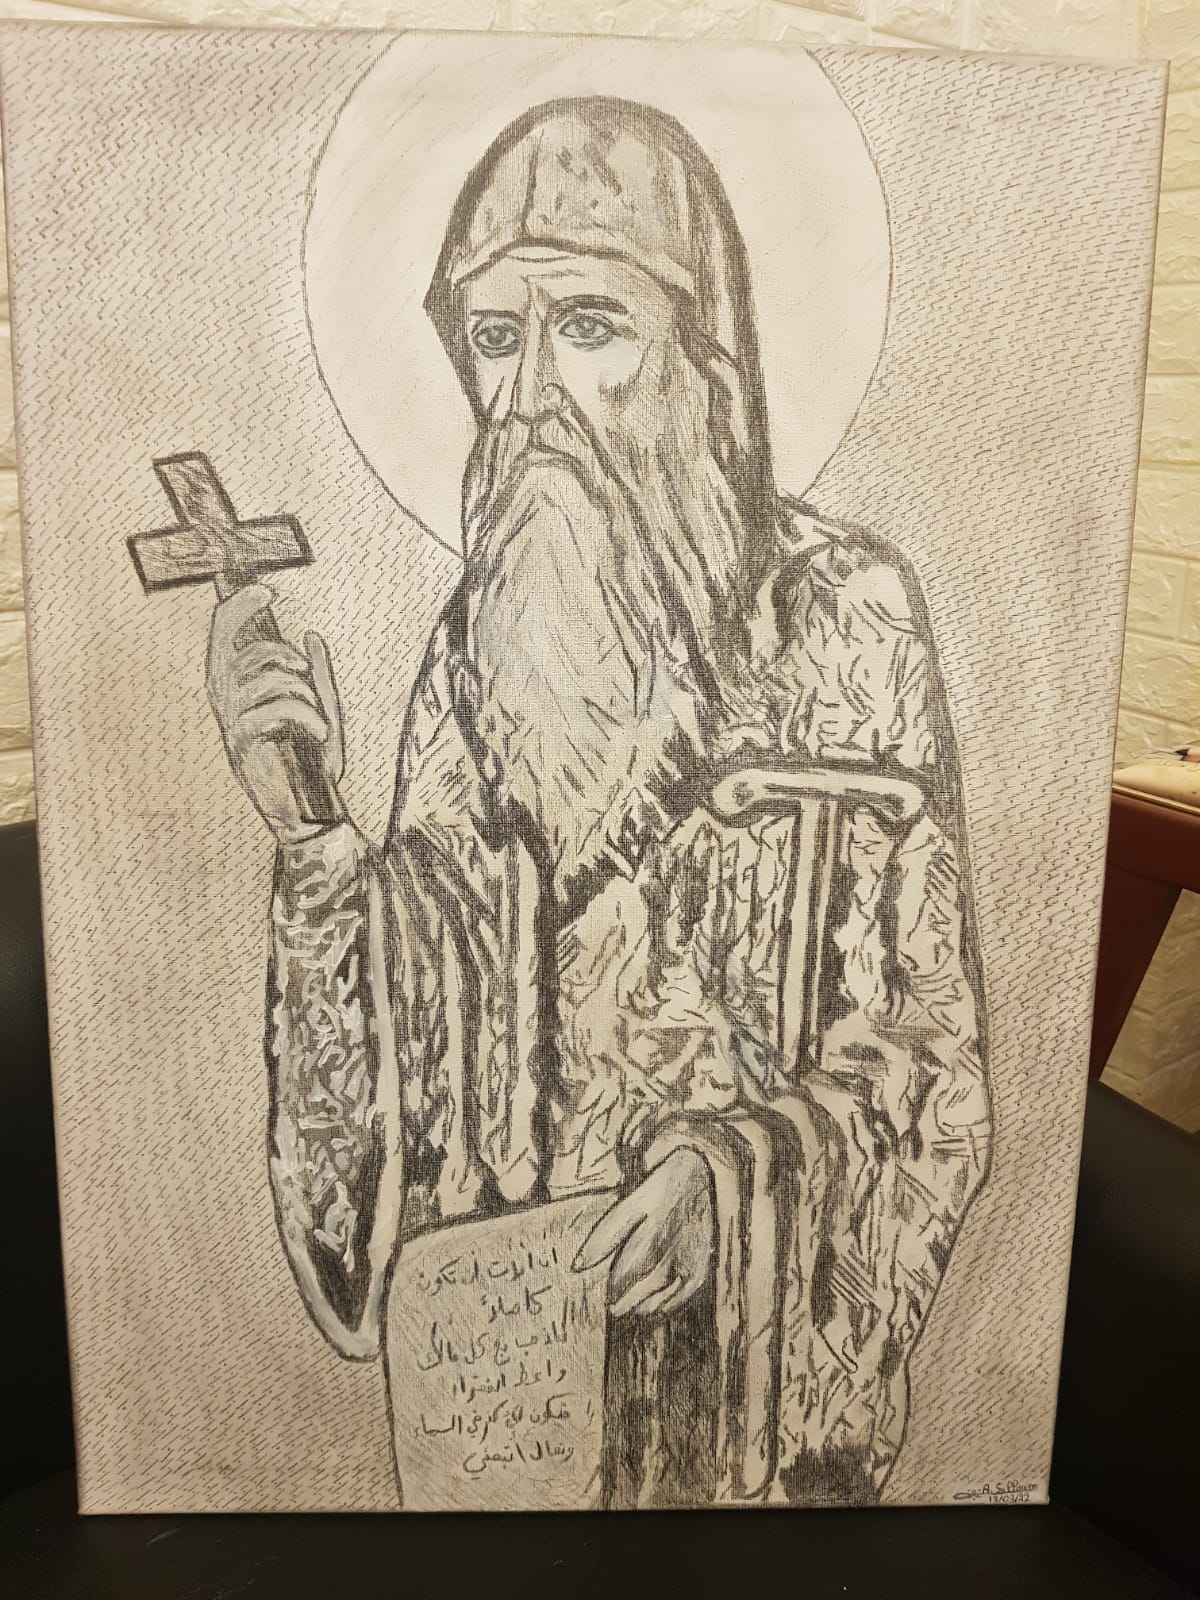 إن أردت أن تكون
كاملاً
فاذهب بع كل مالك
واعط الفقراء
فيكون لك كنز في السماء
وتعال اتبعني
A. Salloum
13/03/22